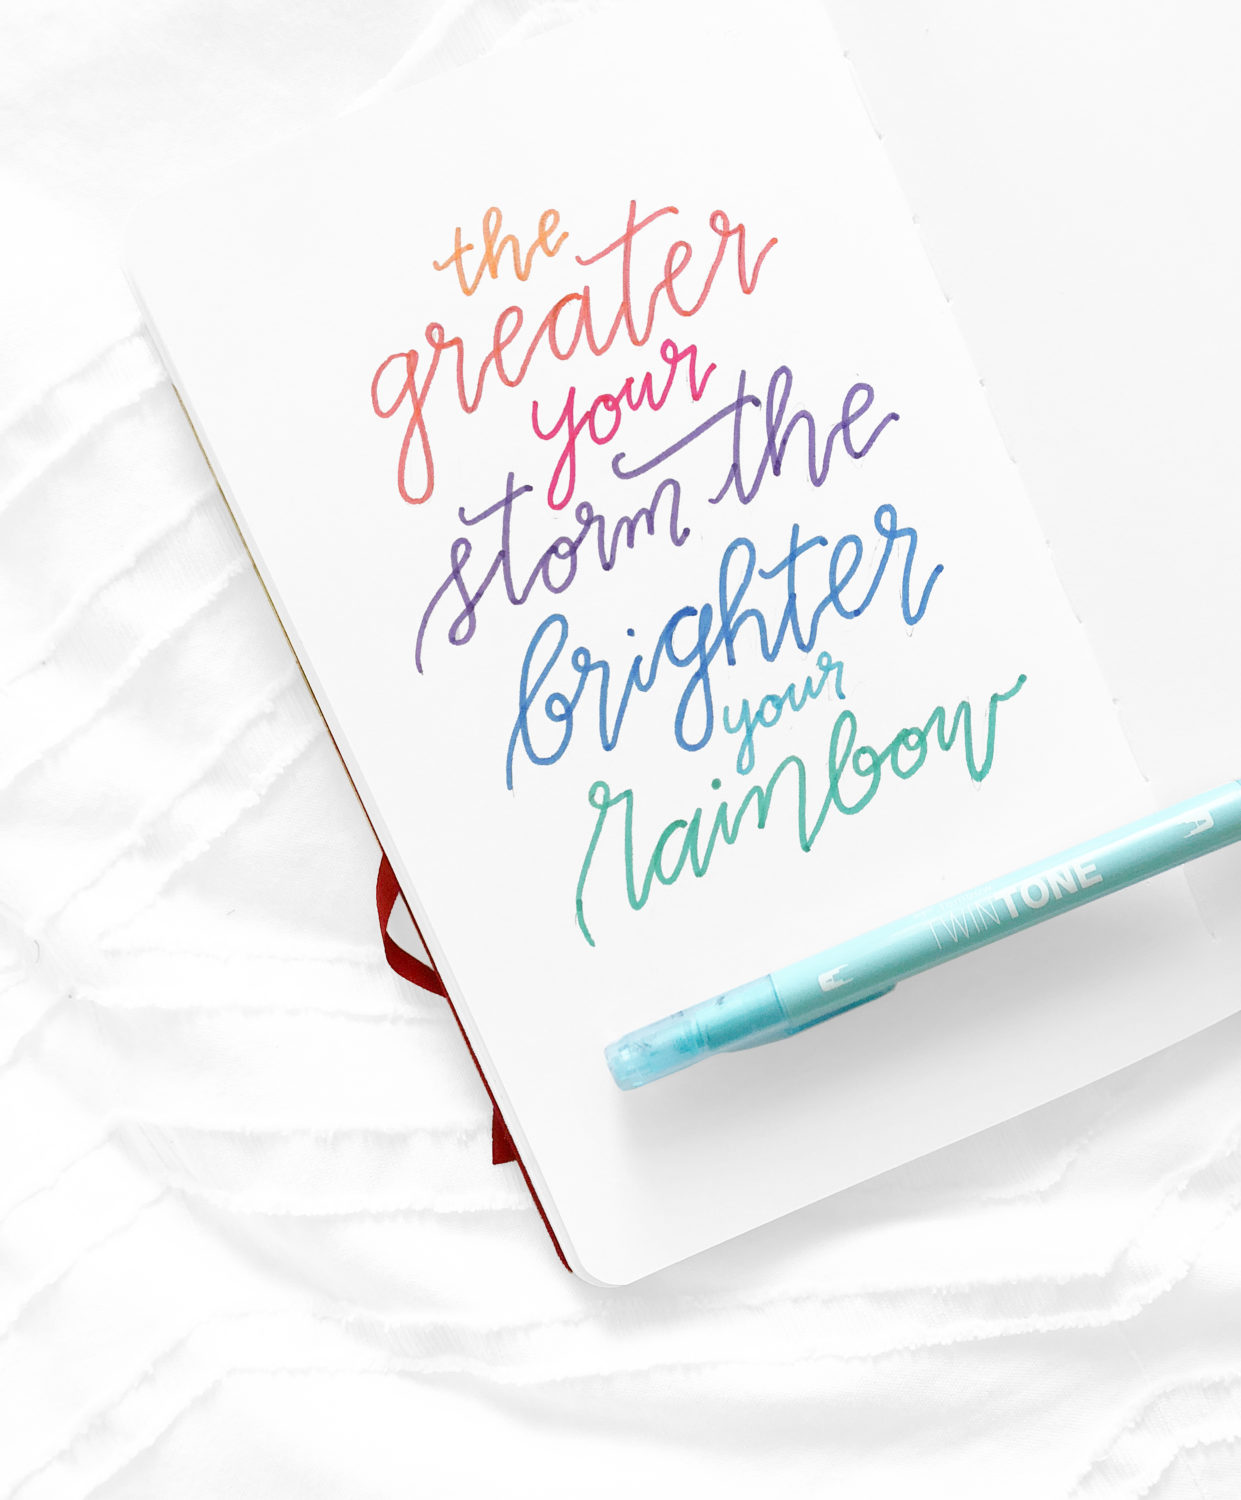 the
greater
your
storm the
brighter
your
rainbow
TWINTONE